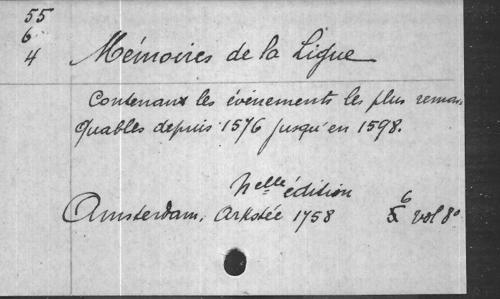 55
6
4
Mémoires de la Ligue
Contenant les événements les plus remar
quables depuis 1576 jusqu'en 1598.
Nelle édition
Amsterdam, Arkstée 1758 6 vol 8º